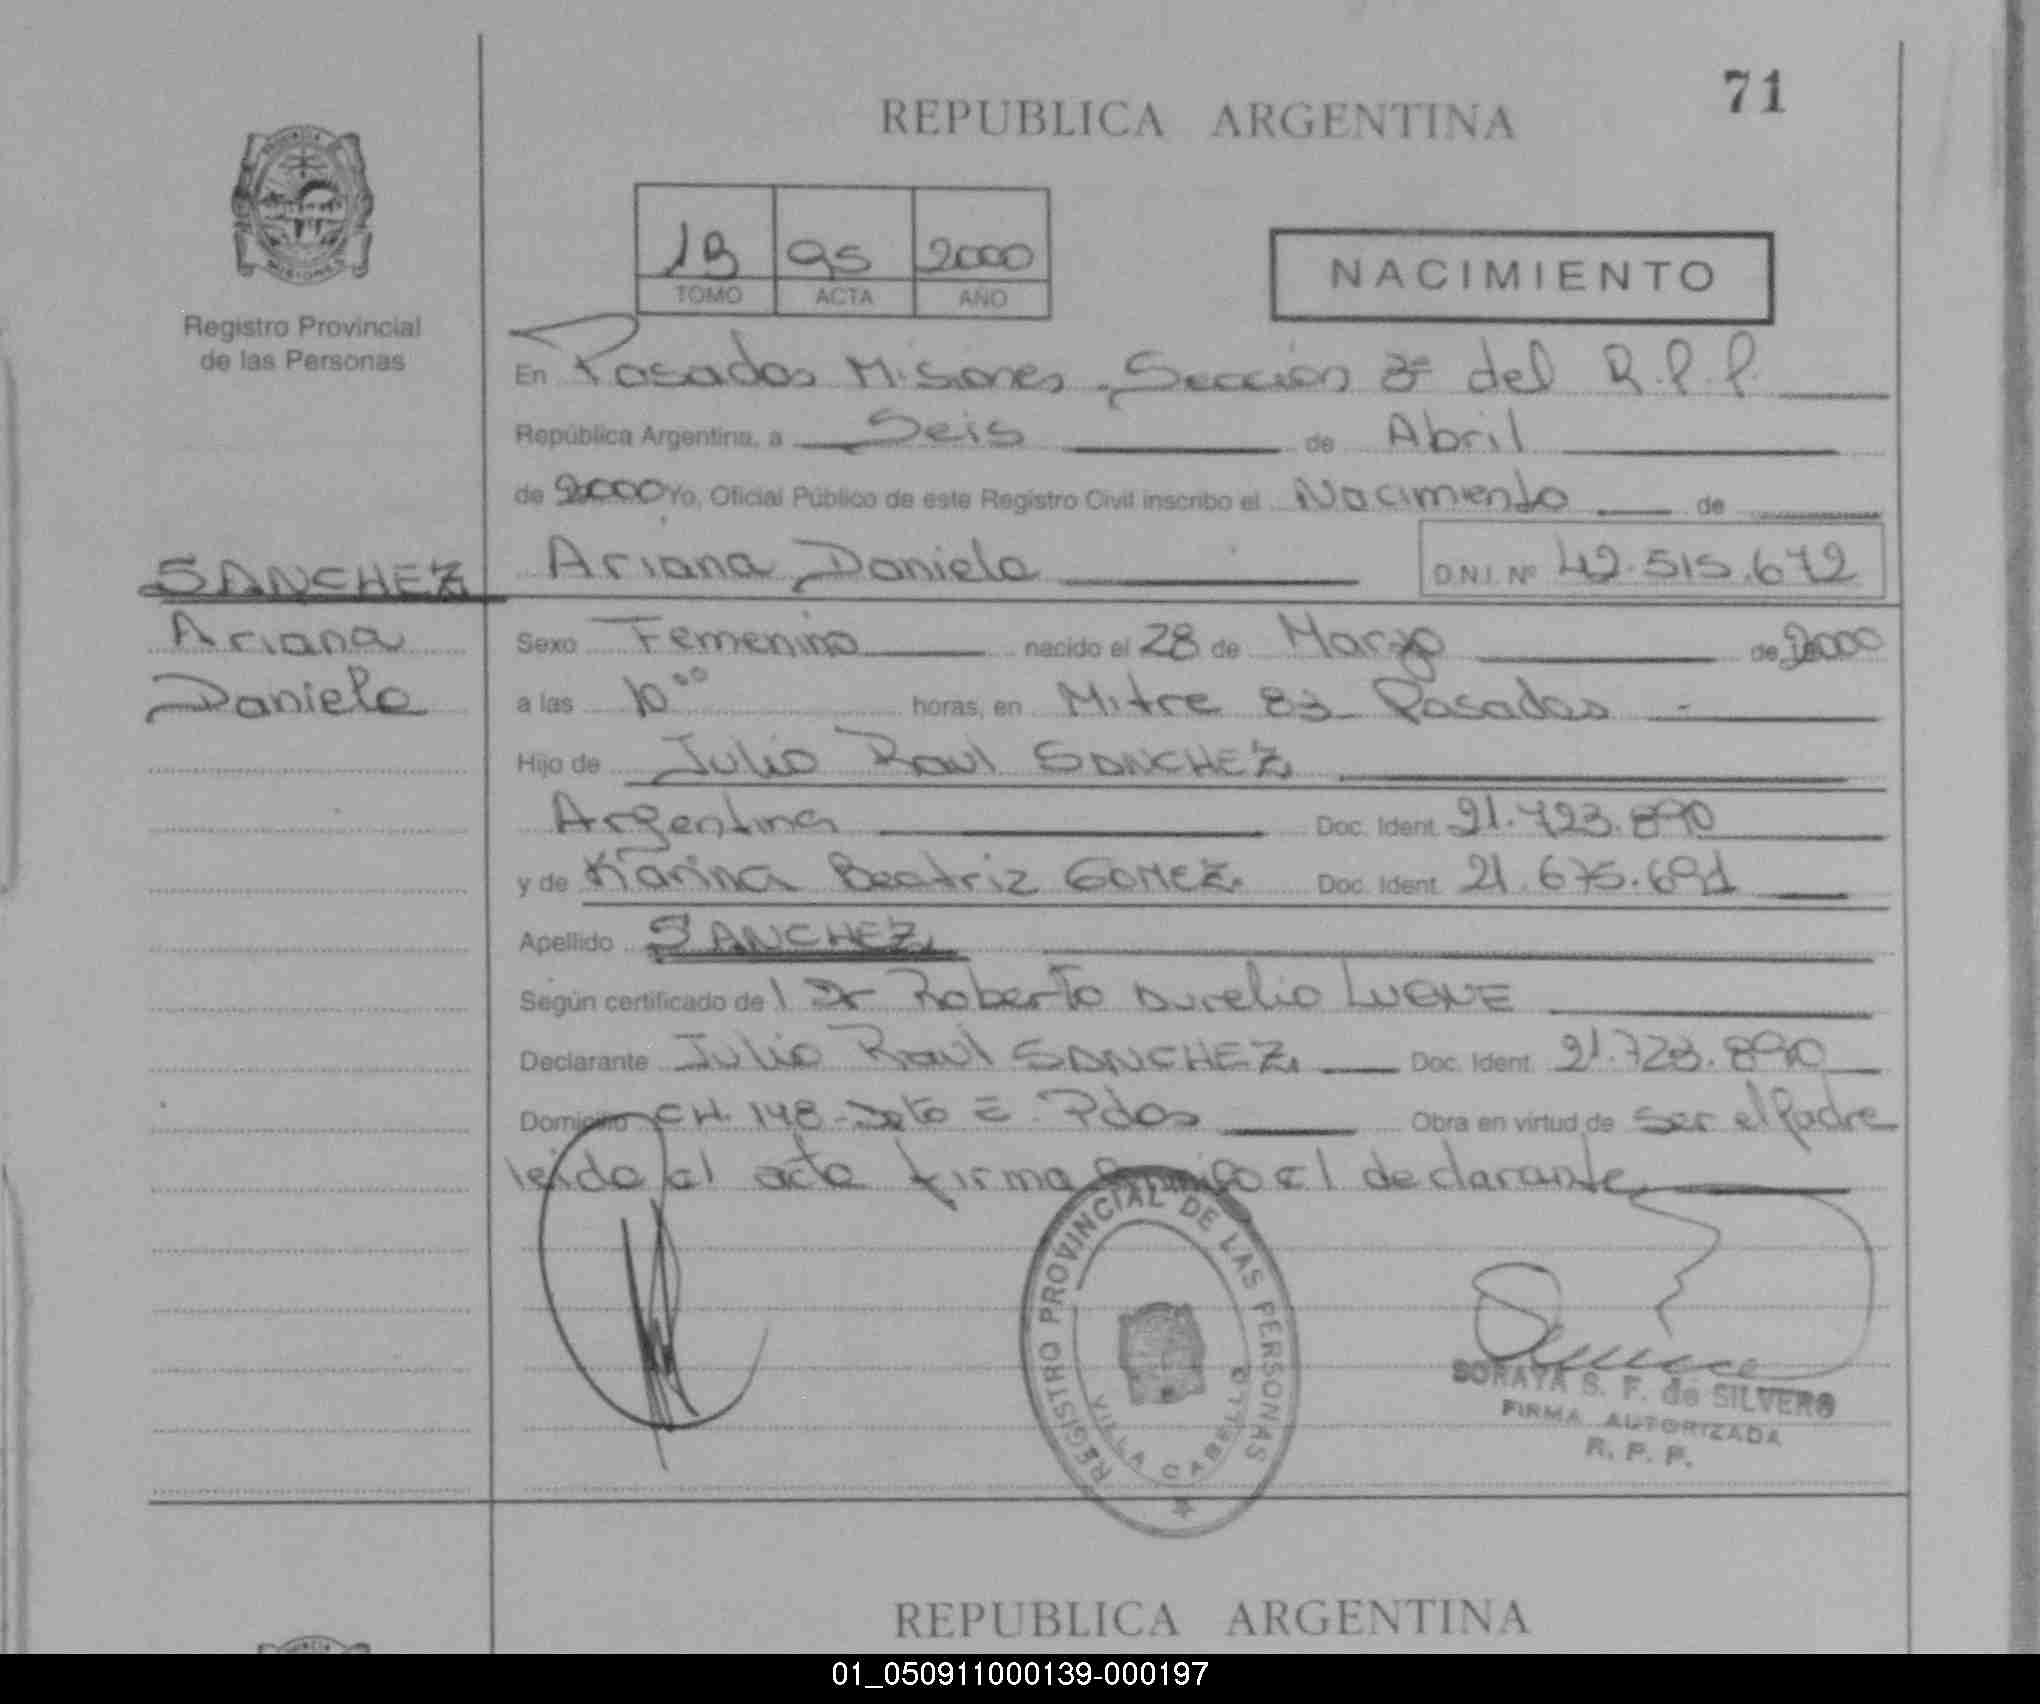 71
REPUBLICA ARGENTINA
MISIONES
Registro Provincial
de las Personas
1B 95 2000
TOMO ACTA AÑO
NACIMIENTO
En Posadas Misiones, Sección 3ª del R.P.P.
República Argentina, a Seis de Abril
de 2000 Yo, Oficial Público de este Registro Civil inscribo el Nacimiento de
SANCHEZ Ariana Daniela D.N.I. Nº 42.515.672
Ariana Sexo Femenino nacido el 28 de Marzo de 2000
Daniela a las 10⁰⁰ horas, en Mitre 83 Posadas
Hijo de Julio Raul SANCHEZ
Argentina Doc. Ident. 21.723.890
y de Karina Beatriz GOMEZ Doc. Ident. 21.675.691
Apellido SANCHEZ
Según certificado de l Dr Roberto Aurelio LUQUE
Declarante Julio Raul SANCHEZ Doc. Ident. 21.723.890
Domicilio CH. 148 - Dto E Pdas Obra en virtud de ser el Padre
leida el acta firma conmigo el declarante
REGISTRO PROVINCIAL DE LAS PERSONAS
VILLA CABELLO
SORAYA S. F. de SILVERO
FIRMA AUTORIZADA
R. P. P.
REPUBLICA ARGENTINA
01_050911000139-000197